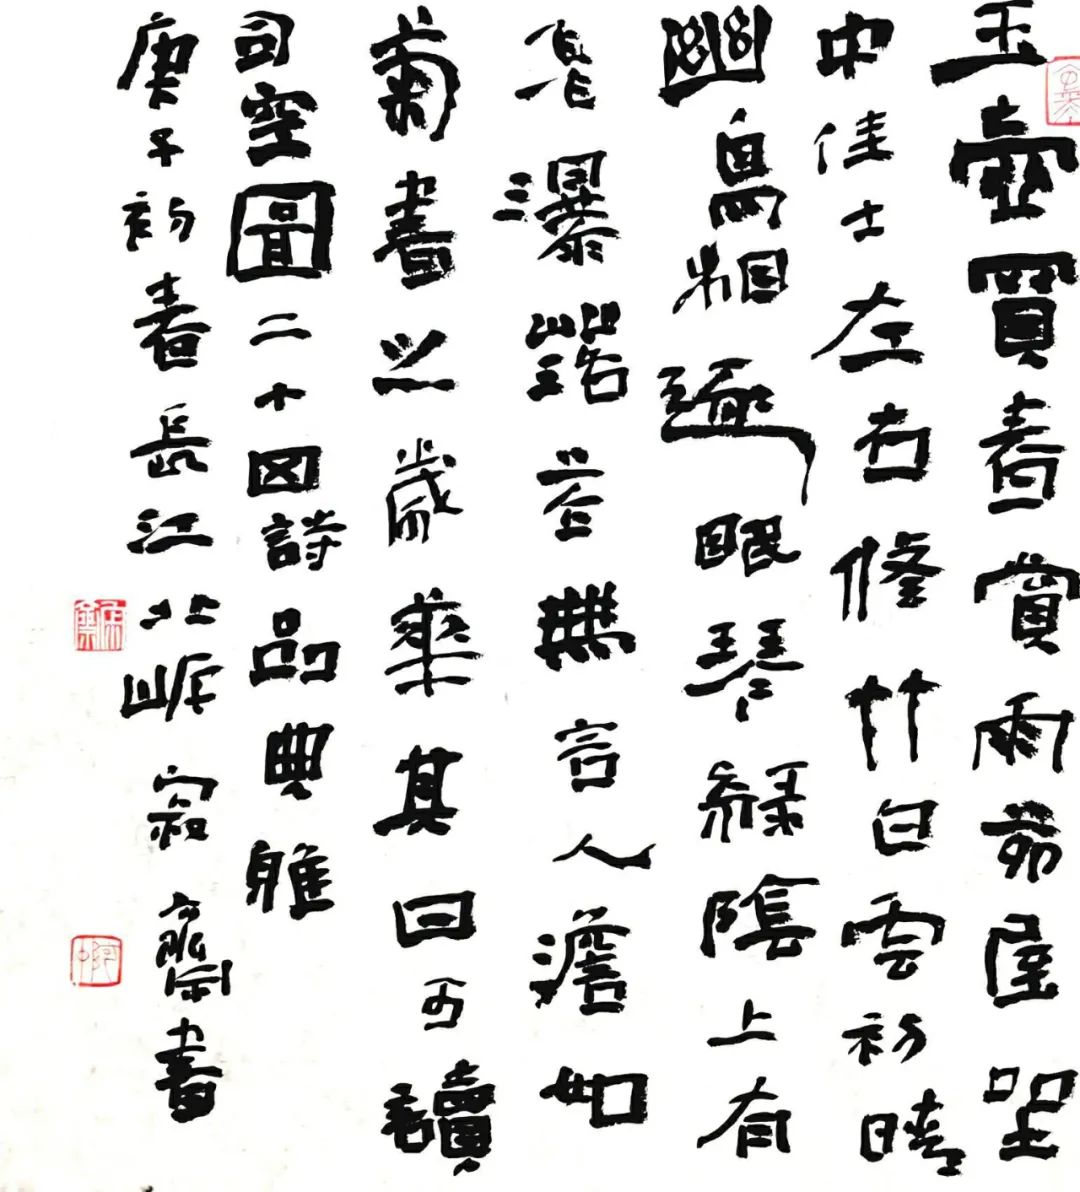 玉壺買春賞雨茆屋坐
中佳士左右修竹白雲初晴
幽鳥相逐眠琴綠陰上有
飛瀑落花無言人澹如
菊書之歲華其曰可讀
司空圖二十四詩品典雅
庚子初春長江北岸寂齋書